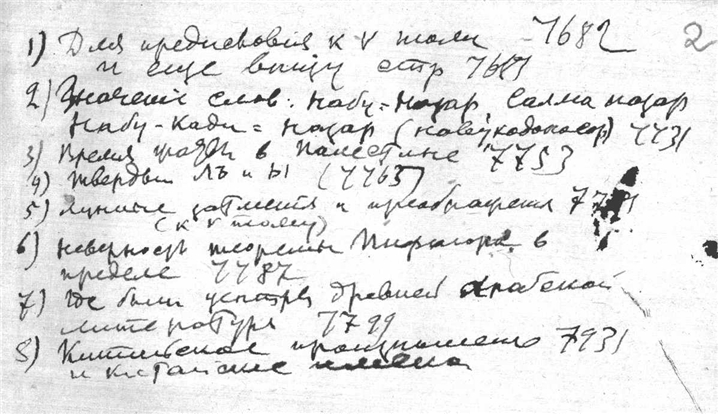 2
1) Для предисловия к V тому 7682
и еще внизу стр
2) Значение слов: Набу-Назар Салманазар
Набу-Кади-Назар (Навуходоносор) 7731
3) Время в Палестине 7753
4) твердый лъ и ы (7763)
5) Лунные затмения и преображения
(к V тому)
6) Неверность теоремы Пифагора в
пределе 7787
7) Где были центры древней арабской
литературы 7799
8) Китайское произношение 7931
и китайские имена